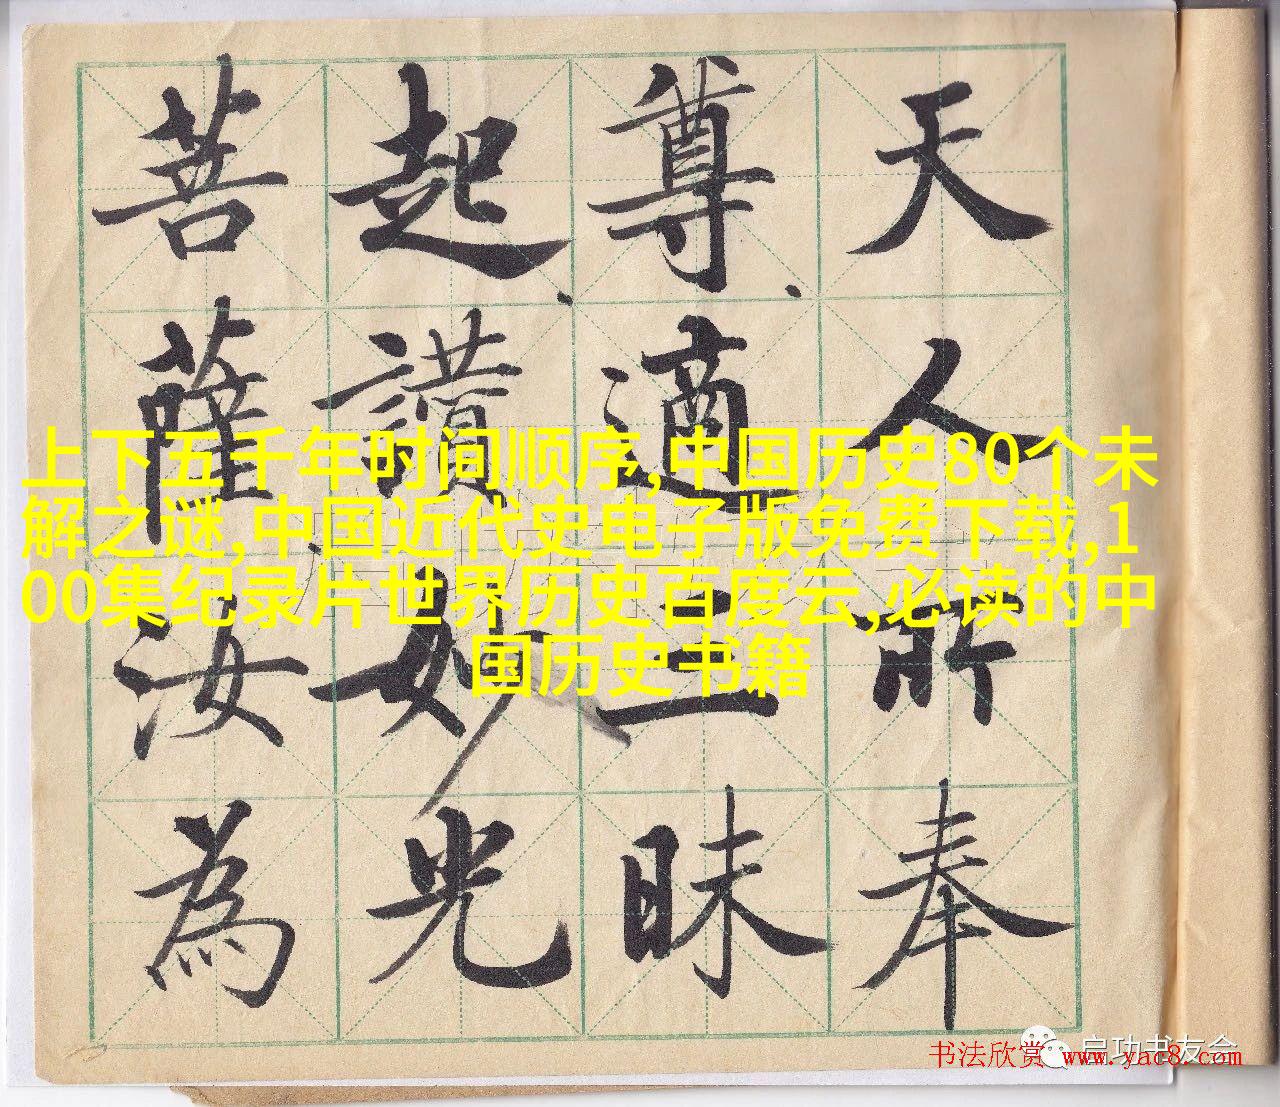 天人所奉
尊適三昧
起讚妙光
菩薩汝為
上下五千年时间顺序,中国历史80个未
解之谜,中国近代史电子版免费下载,1
00集纪录片世界历史百度云,必读的中
国历史书籍
启功书友会
书法欣赏 www.yac8.com